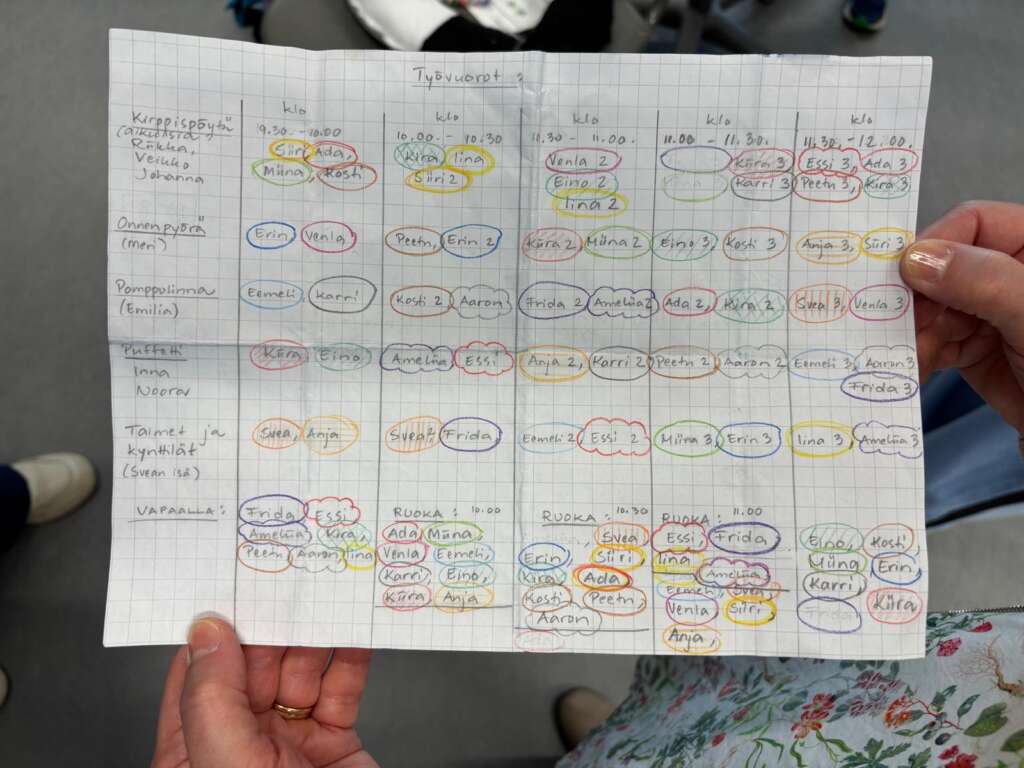 Työvuorot:
klo klo klo klo klo
Kirppispöytä
(aikuisia)
9.30. - 10.00 10.00. - 10.30 10.30 - 11.00. 11.00 - 11.30. 11.30. - 12.00.
Riikka, Siiri Ada, Kira Iina Venla 2 Kiira 3 Essi 3, Ada 3
Veikko Miina, Kosti Siiri 2 Eino 2 Karri 3 Peetu 3, Kira 3
Johanna Iina 2
Onnenpyörä
(meri) Erin Venla Peetu, Erin 2 Kiira 2 Miina 2 Eino 3 Kosti 3 Anja 3, Siiri 3
Pomppulinna Eemeli, Karri Kosti 2 Aaron Frida 2 Ameliia 2 Ada 2, Kira 2 Svea 3, Venla 3
(Emilia)
Puffetti Kiira Eino Ameliia Essi Anja 2, Karri 2 Peetu 2 Aaron 2 Eemeli 3 Aaron 3
Inna Frida 3
Noora
Taimet ja Svea, Anja Svea 2 Frida Eemeli 2 Essi 2 Miina 3 Erin 3 Iina 3 Ameliia 3
kynttilät
(Svean isä)
VAPAALLA: Frida, Essi RUOKA: 10.00 RUOKA: 10.30 RUOKA: 11.00
Ameliia, Kira, Ada, Miina Svea Essi, Frida Eino, Kosti,
Peetu Aaron Iina Venla Eemeli, Erin, Siiri Iina Ameliia Miina Erin,
Karri, Eino, Kira Ada Eemeli, Svea, Karri,
Kiira Anja Kosti, Peetu, Venla Siiri, Frida Kiira
Aaron Anja,